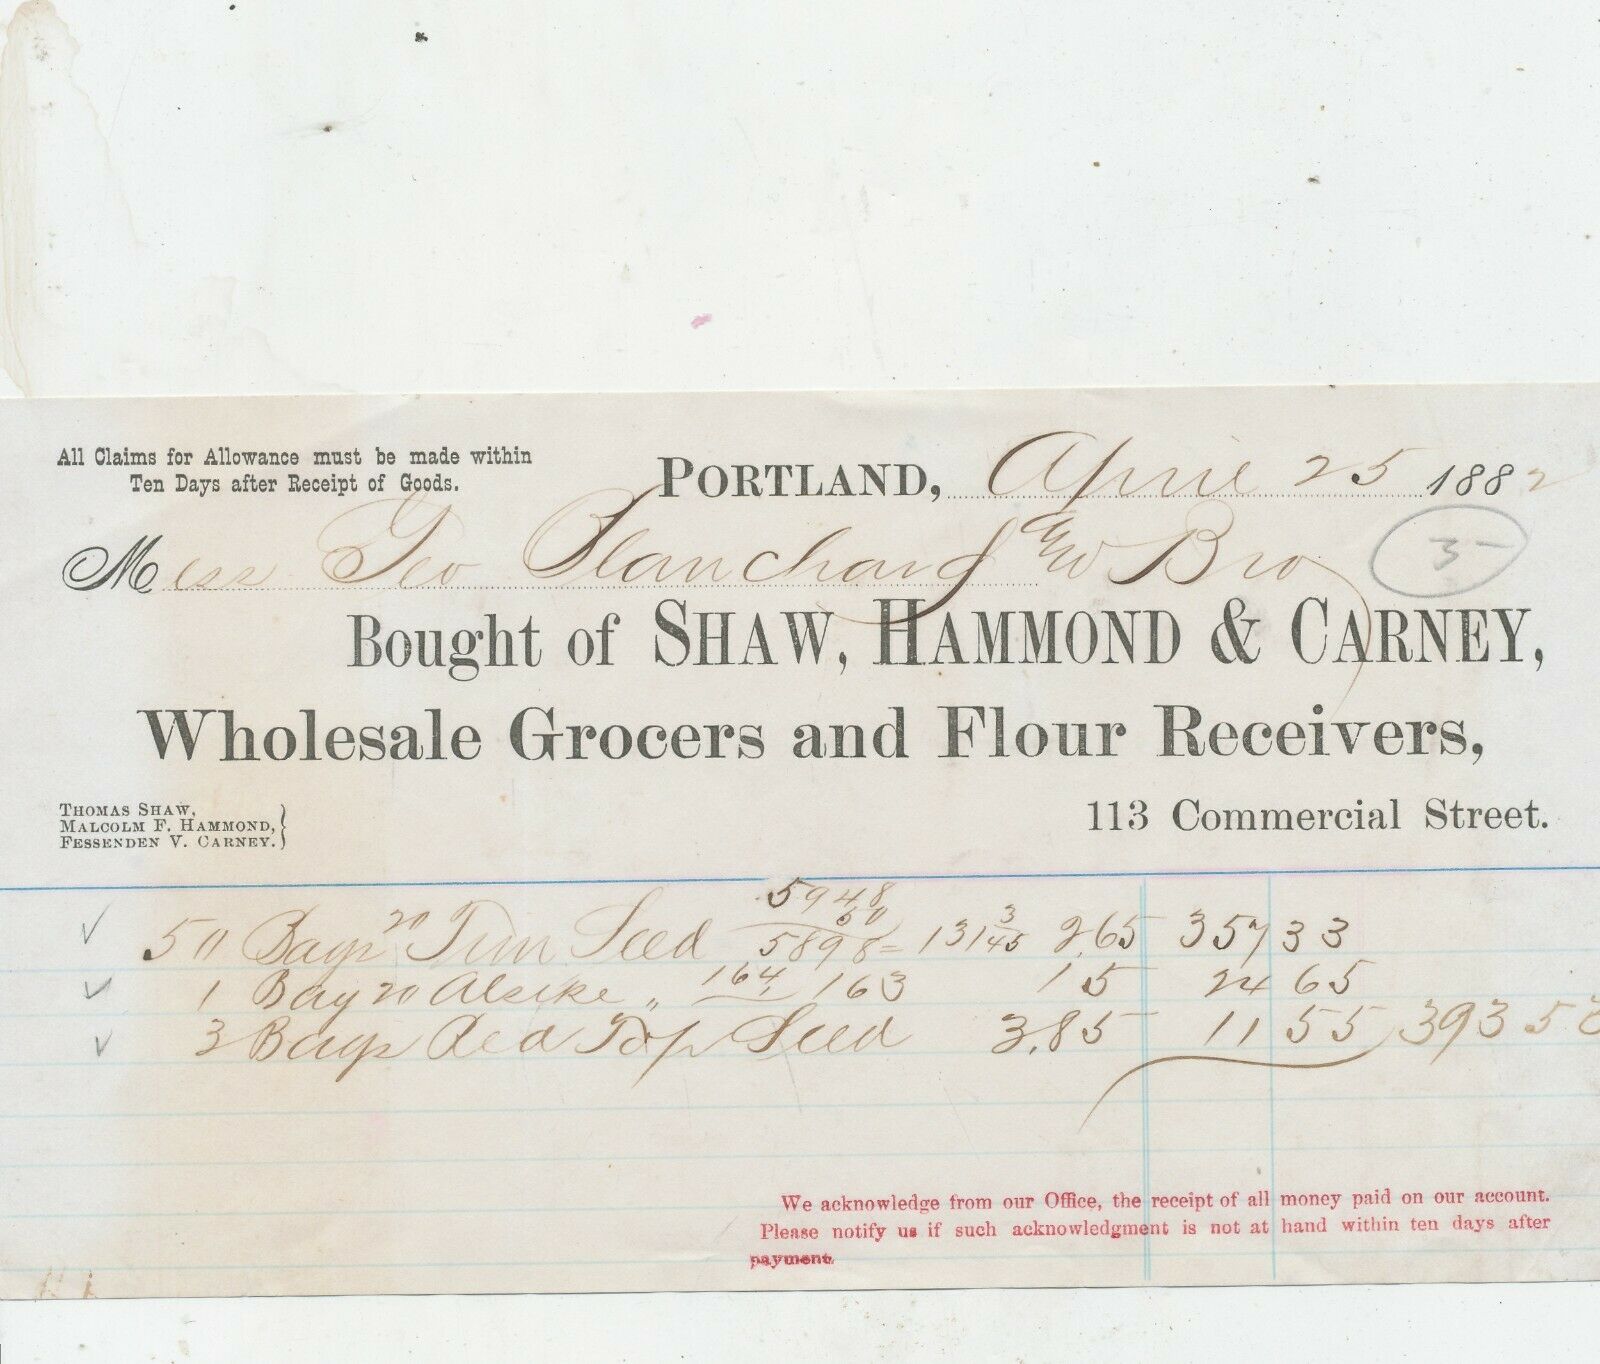 All Claims for Allowance must be made within
Ten Days after Receipt of Goods.
PORTLAND, April 25 1882
Mess Geo Blanchard & Bro
3-
Bought of SHAW, HAMMOND & CARNEY,
Wholesale Grocers and Flour Receivers,
THOMAS SHAW,
MALCOLM F. HAMMOND,
FESSENDEN V. CARNEY.
113 Commercial Street.
5948
50
50 Bags Tim Seed 5898 = 131 3/45 2.65 357 33
1 Bag Alsike " 164 163 15 24 65
3 Bags Red Top Seed 3.85 11 55 393 53
We acknowledge from our Office, the receipt of all money paid on our account.
Please notify us if such acknowledgment is not at hand within ten days after
payment.